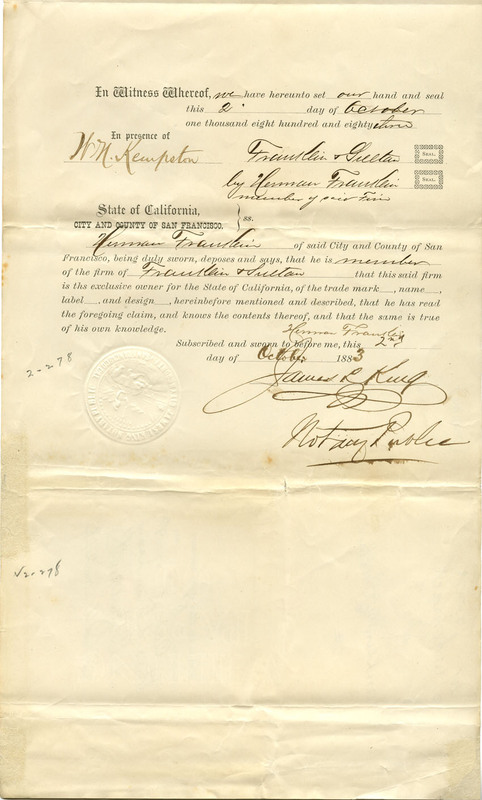 In Witness Whereof, we have hereunto set our hand and seal
this 2 day of October
one thousand eight hundred and eighty three
In presence of
W. N. Kempston
Franklin &
SEAL.
by Herman Franklin
SEAL.
member of said Firm
State of California,
CITY AND COUNTY OF SAN FRANCISCO. } ss.
Herman Franklin of said City and County of San
Francisco, being duly sworn, deposes and says, that he is member
of the firm of Franklin & that this said firm
is ths exclusive owner for the State of California, of the trade mark , name ,
label , and design , hereinbefore mentioned and described, that he has read
the foregoing claim, and knows the contents thereof, and that the same is true
of his own knowledge.
Herman Franklin
Subscribed and sworn to before me, this 2nd
day of October 1883
James L King
Notary Public
2-278
V2-278